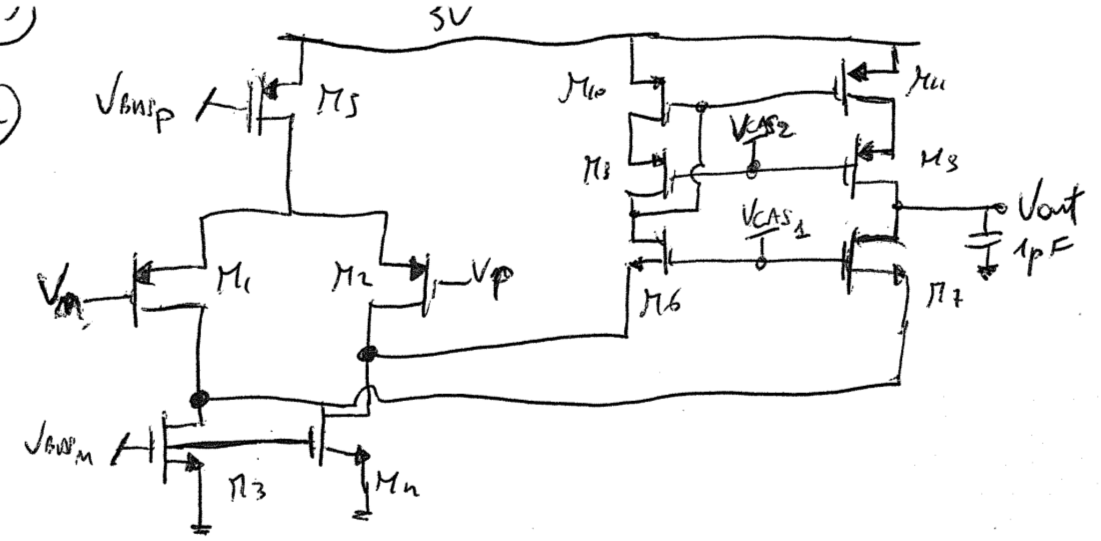 5V
VBIASP
M5
M10
M11
VCAS2
M8
M9
VCAS1
Vout
1pF
M1
M2
Vp
M6
M7
M3